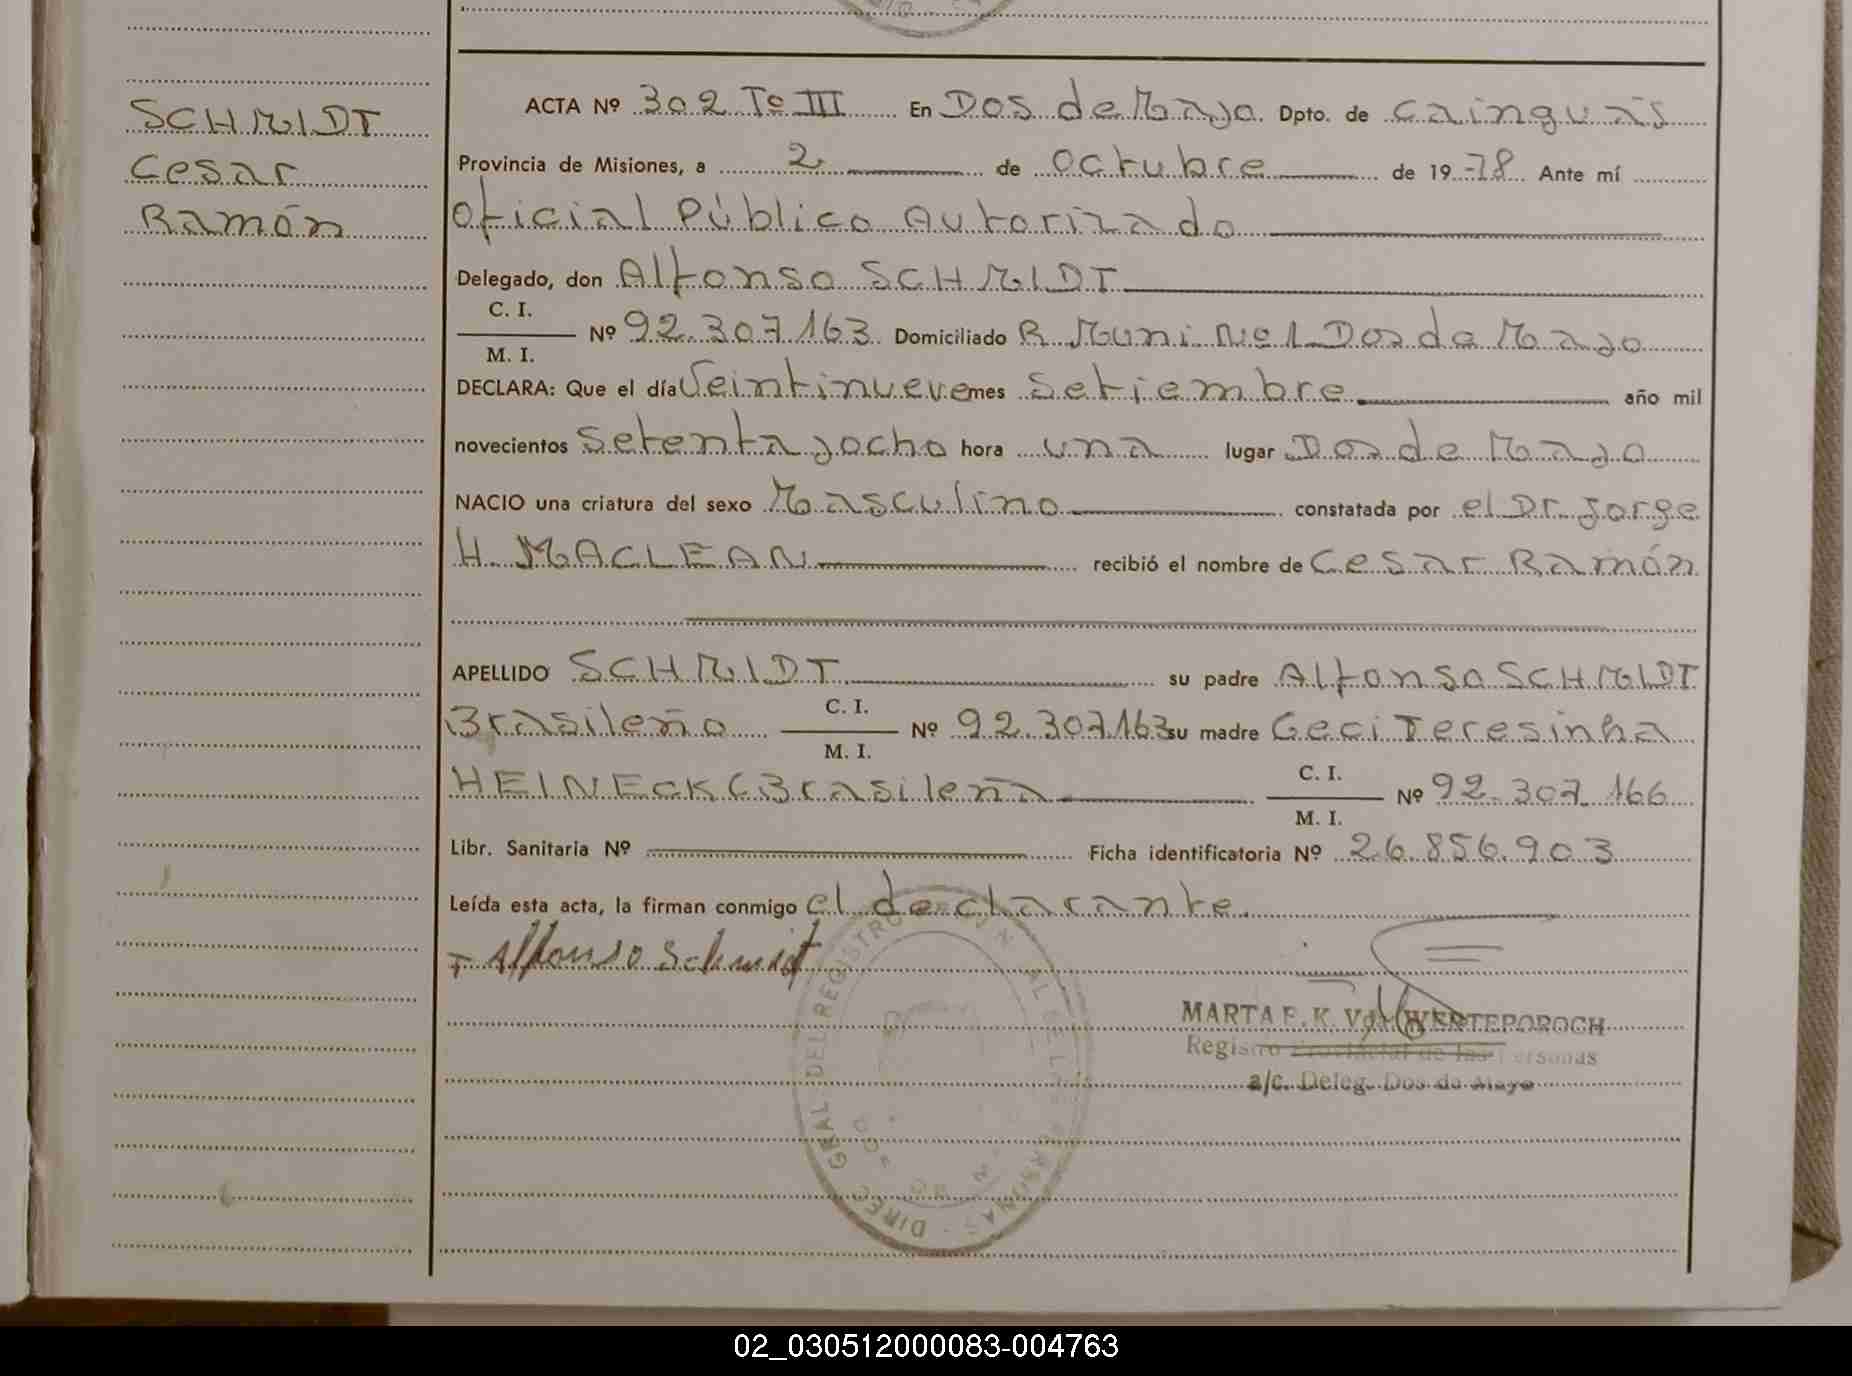 SCHMIDT
Cesar
Ramón
ACTA Nº 302 Tº III En Dos de Mayo Dpto. de Cainguás
Provincia de Misiones, a 2 de Octubre de 19 78 Ante mí
Oficial Público Autorizado
Delegado, don Alfonso SCHMIDT
C. I.
M. I. Nº 92.307.163 Domiciliado R. Muni. Nº 1 Dos de Mayo
DECLARA: Que el día Veintinueve mes Setiembre año mil
novecientos Setenta y ocho hora una lugar Dos de Mayo
NACIO una criatura del sexo Masculino constatada por el Dr. Jorge
H. MACLEAN recibió el nombre de Cesar Ramón
APELLIDO SCHMIDT su padre Alfonso SCHMIDT
Brasileño C. I.
M. I. Nº 92.307.163 su madre Geci Teresinha
HEINECK (Brasileña C. I.
M. I. Nº 92.307.166
Libr. Sanitaria Nº Ficha identificatoria Nº 26.856.903
Leída esta acta, la firman conmigo el declarante.
Alfonso Schmidt
MARTA E. K. WERTEPOROCH
Registro Provincial de las Personas
a/c. Deleg. Dos de Mayo
02_030512000083-004763